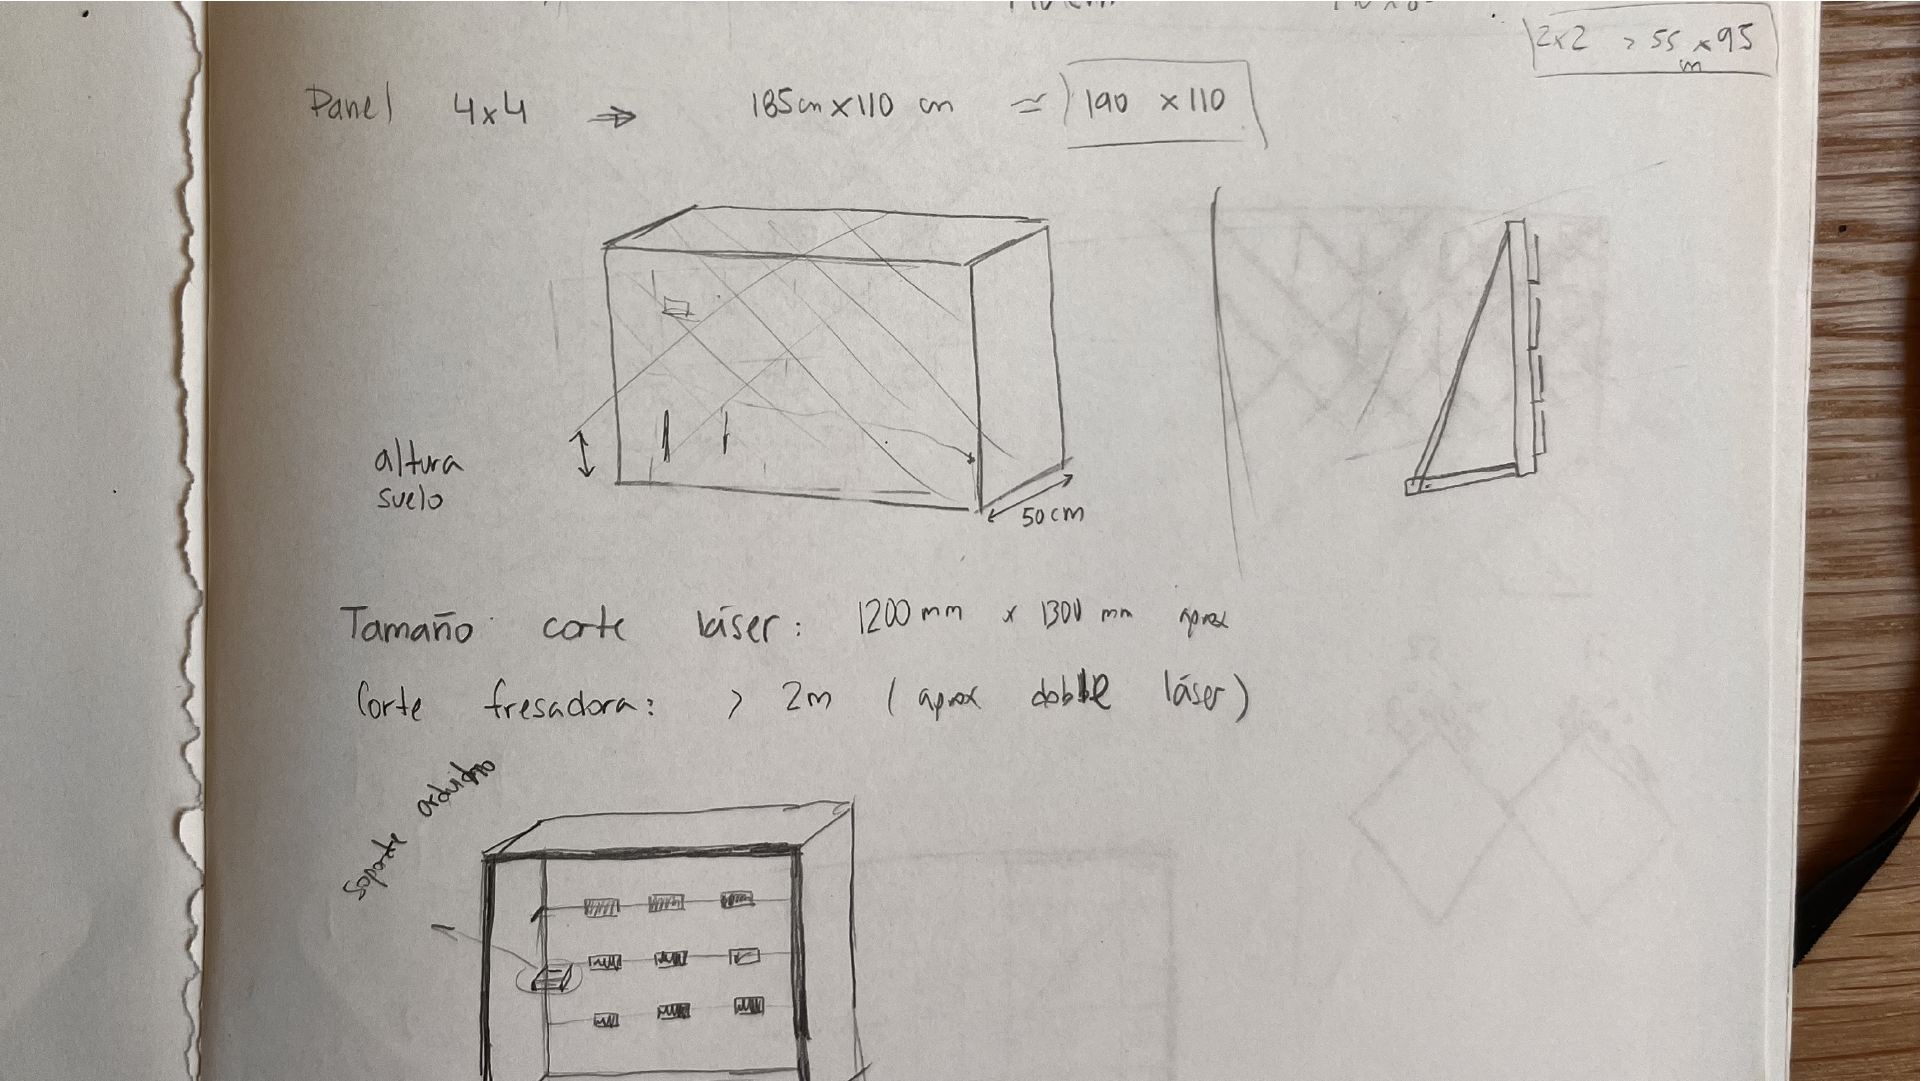 2x2 > 55 x 95
m
Panel 4x4 ⇒ 185cm x 110 cm ≃ 190 x 110
altura
suelo
50cm
Tamaño corte láser: 1200mm x 1300 mm aprox
Corte fresadora: > 2m (aprox doble láser)
soporte arduino